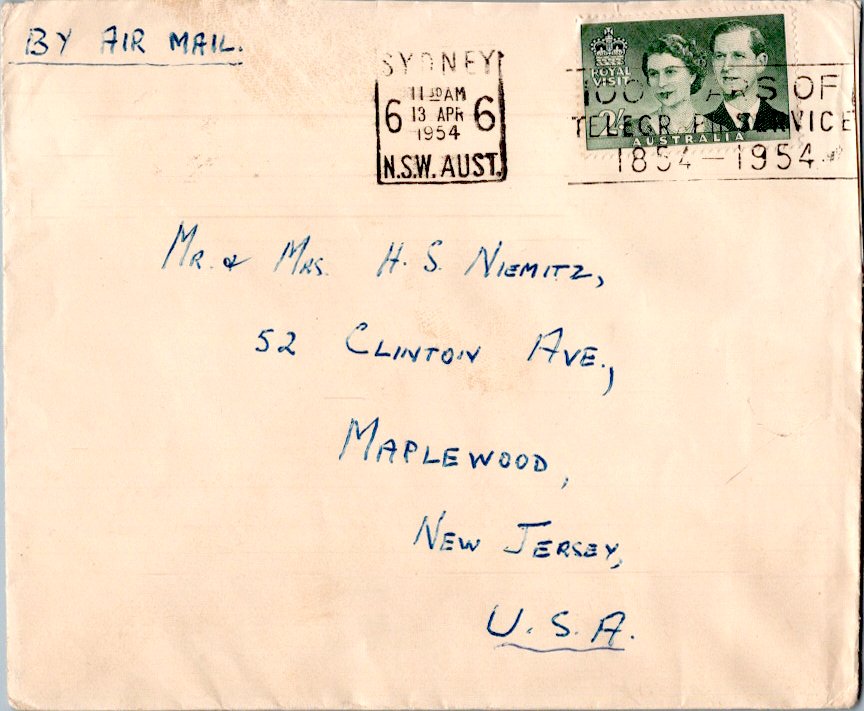 BY AIR MAIL.
SYDNEY
11 30 AM
6 13 APR 6
1954
N.S.W. AUST.
ROYAL
VISIT
2/-
AUSTRALIA
100 YEARS OF
TELEGRAPH SERVICE
1854 — 1954
MR. & MRS. H. S. NIEMITZ,
52 CLINTON AVE.,
MAPLEWOOD,
NEW JERSEY,
U.S.A.